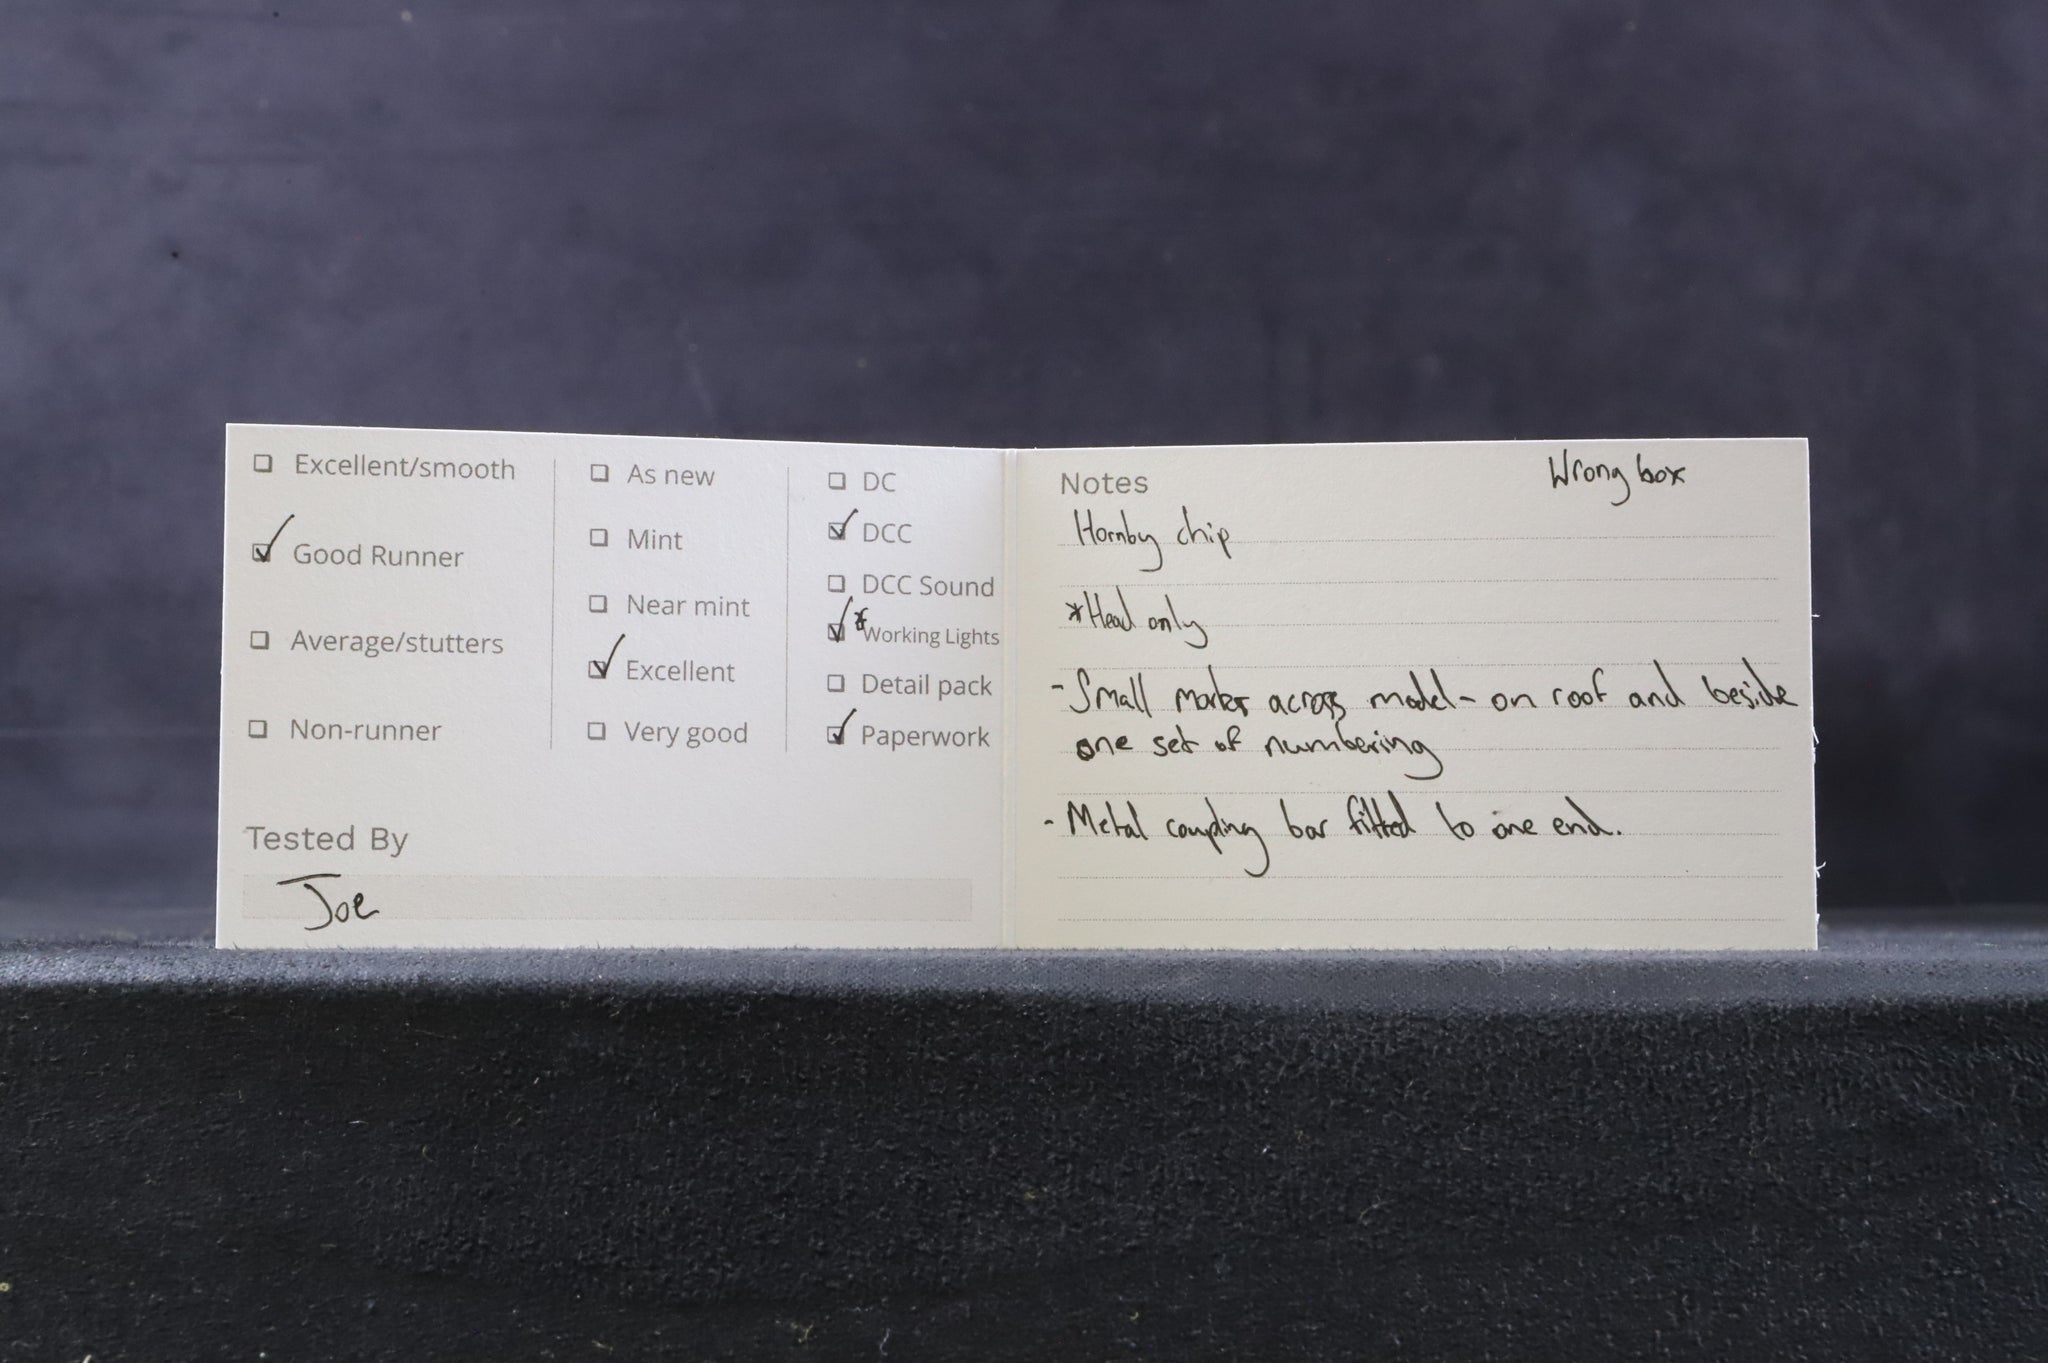 ☐ Excellent/smooth
☑ Good Runner
☐ Average/stutters
☐ Non-runner
☐ As new
☐ Mint
☐ Near mint
☑ Excellent
☐ Very good
☐ DC
☑ DCC
☐ DCC Sound
☑ *Working Lights
☐ Detail pack
☑ Paperwork
Tested By
Joe
Wrong box
Notes
Hornby chip
*Head only
- Small marks across model - on roof and beside
one set of numbering
- Metal coupling bar fitted to one end.